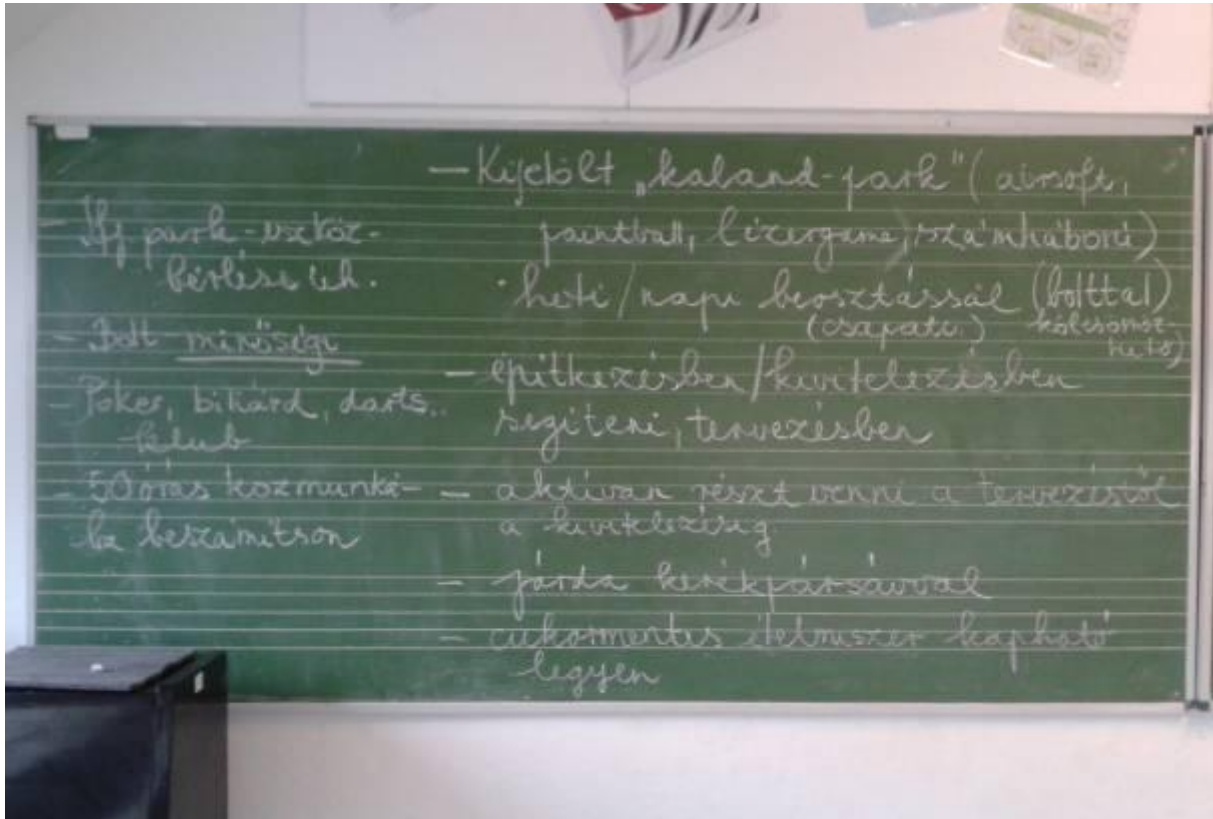 - Ifj park-eszköz-
bérlése ich.
- Bolt minőségi
- Póker, biliárd, darts..
klub
- 50 órás közmunká-
ba beszámítson
- Kijelölt „kaland-park" (airsoft,
paintball, lézergame, számháború)
· heti/napi beosztással (bolttal)
(csapatt.) kölcsönöz-
hető)
- építkezésben/kivitelezésben
segíteni, tervezésben
- aktívan részt venni a tervezéstől
a kivitelezésig
- járda kerékpársávval
- cukormentes élelmiszer kapható
legyen